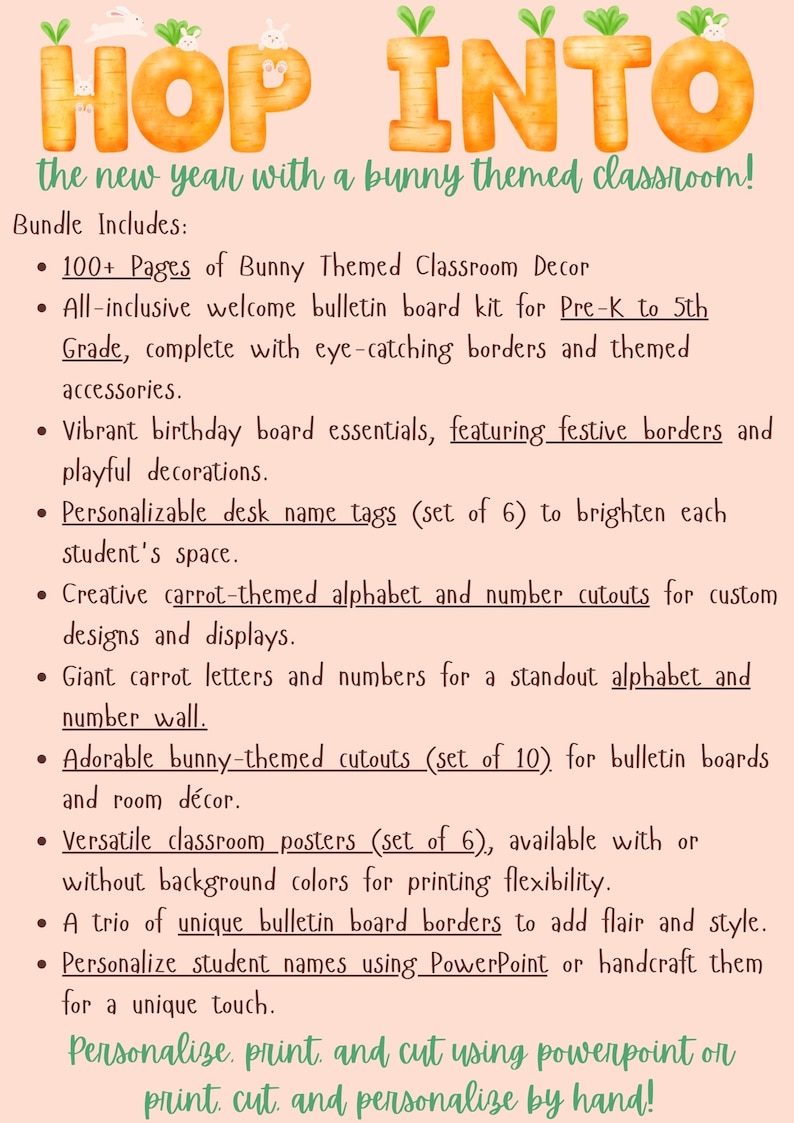 HOP INTO
the new year with a bunny themed classroom!
Bundle Includes:
• 100+ Pages of Bunny Themed Classroom Decor
• All-inclusive welcome bulletin board kit for Pre-K to 5th
Grade, complete with eye-catching borders and themed
accessories.
• Vibrant birthday board essentials, featuring festive borders and
playful decorations.
• Personalizable desk name tags (set of 6) to brighten each
student's space.
• Creative carrot-themed alphabet and number cutouts for custom
designs and displays.
• Giant carrot letters and numbers for a standout alphabet and
number wall.
• Adorable bunny-themed cutouts (set of 10) for bulletin boards
and room décor.
• Versatile classroom posters (set of 6), available with or
without background colors for printing flexibility.
• A trio of unique bulletin board borders to add flair and style.
• Personalize student names using PowerPoint or handcraft them
for a unique touch.
Personalize, print, and cut using powerpoint or
print, cut, and personalize by hand!